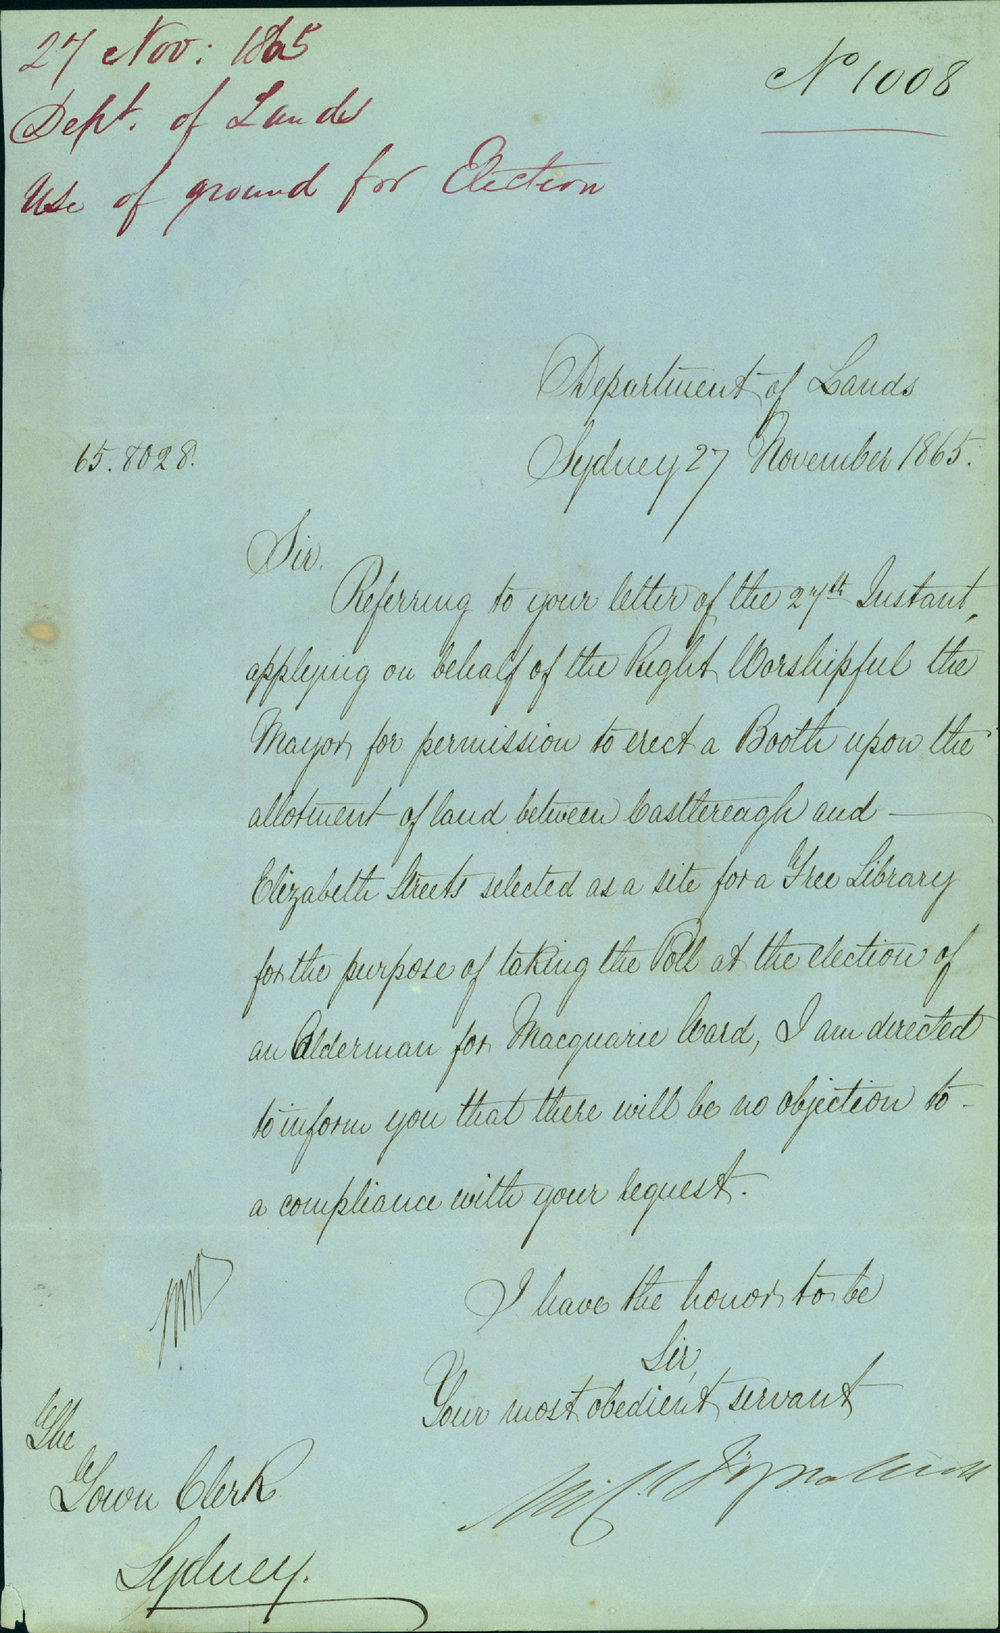 27 Nov: 1865
Dept. of Lands
Use of ground for Election
No 1008
Department of Lands
65.8028.
Sydney 27 November 1865.
Sir,
Referring to your letter of the 27th Instant,
applying on behalf of the Right Worshipful the
Mayor for permission to erect a Booth upon the
allotment of land between Castlereagh and
Elizabeth Streets selected as a site for a Free Library
for the purpose of taking the Poll at the election of
an Alderman for Macquarie Ward, I am directed
to inform you that there will be no objection to
a compliance with your request.
I have the honor to be
Sir,
Your most obedient servant
The
Town Clerk
Sydney.